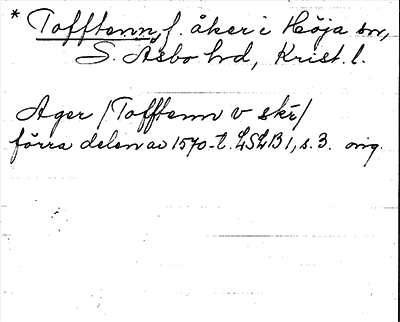 * Tofftenn, f. åker i Höja sn,
S. Åsbo hd, Krist. l.
Ager /Tofftenn v skr/
förra delen av 1570-t. LSLB 1, s. 3. orig.